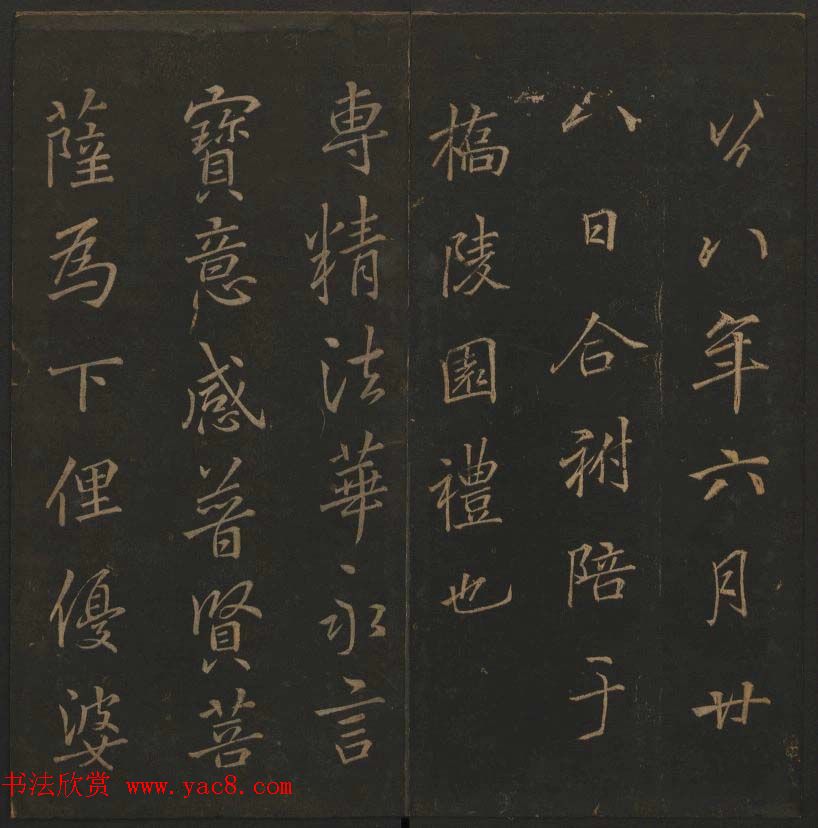 八年六月廿
八日合祔陪于
橋陵園禮也
專精法華永言
寶意感普賢菩
薩為下俚優婆
书法欣赏 www.yac8.com